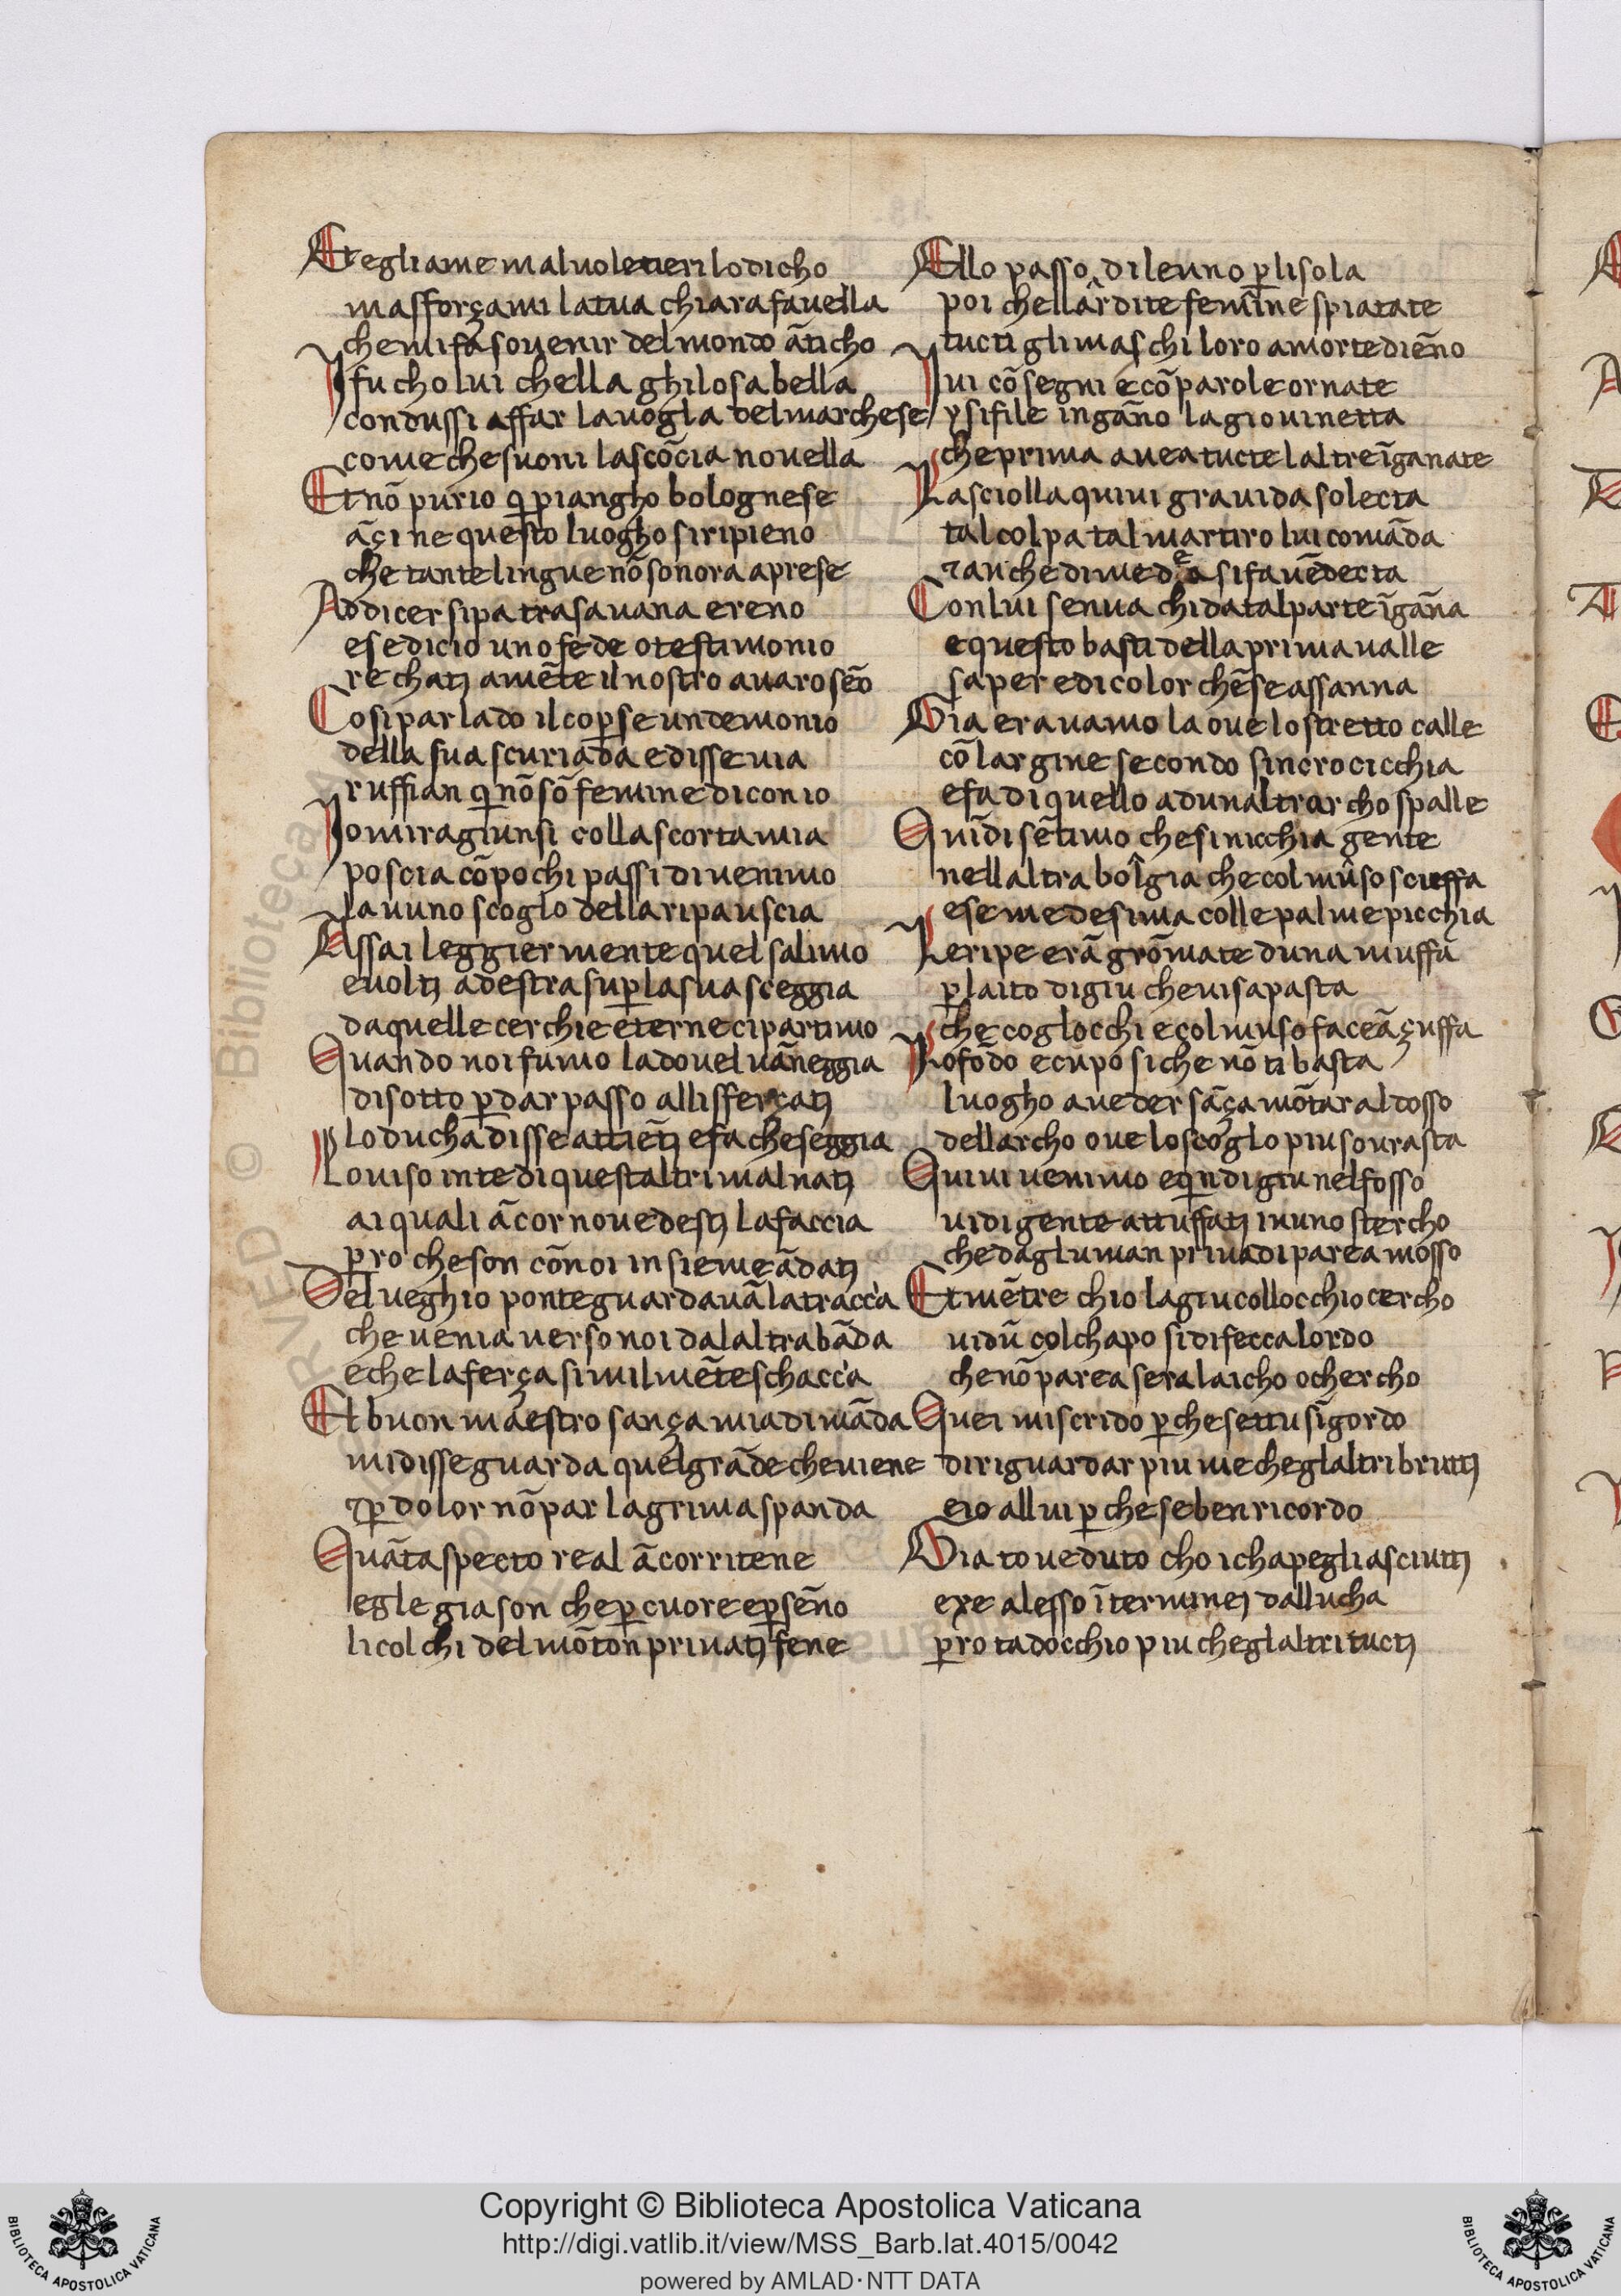 Et egli ame mal uolētieri lo dicho
ma sforçami la tua chiara fauella
che mi fa souenir del mondo āticho
I fu cholui che lla ghilosa bella
condussi affar la uogla del marchese
come che suoni la scōcia nouella
Et nō pur io q̄ piangho bolognese
āçi ne questo luogho si ripieno
che tante lingue nō sonora aprese
Ad dicer sipa tra sauana e reno
e se di cio uno fede o testimonio
rechatj amēte il nostro auaro sēo
Cosi parlado il coperse un demonio
della sua scuriada e disse uia
ruffian q̄ nō sō femine di conio
Io mi ragiunsi colla scorta mia
poscia cō pochi passi diuenimo
la uuno scoglo della ripa uscia
Assai leggiermente quel salimo
e uoltj a destra su p̱ la sua sceggia
da quelle cerchie eterne ci partimo
Quando noi fumo la douel uāneggia
di sotto p̱ dar passo alli sfferçatj
Lo ducha disse attiētj e fa che seggia
Lo uiso inte di questaltri mal natj
ai quali ācor no uedestj la faccia
p̱ro che son cō noi insieme ādatj
Del ueghio ponte guardauā la tracca
che uenia uerso noi dalaltra bāda
e che la ferça similmēte schacca
El buon maestro sança mia dimāda
mi disse guarda quel grāde che uiene
⁊ p̱ dolor nō par lagrima spanda
Quāta specto real ācor ritene
egle giason che p̱ cuore e p̱ sēno
li colchi del mōton priuatj fene
Ello passo di lenno p̱ lisola
poi che llardite femine spiatate
tucti gli maschi loro a morte diēno
Iui cō segni e cō parole ornate
ysifile ingāno la giouinetta
che prima auea tucte laltre īganate
Lasciolla quiui grauida solecta
tal colpa tal martiro lui comāda
⁊ anche di medea si fa uēdecta
Con lui senua chi da tal parte īgāna
e questo basti della prima ualle
sapere di color chēse assanna
Gia erauamo la oue lo stretto calle
cō largine secondo sincrocicchia
e fa di quello ad unaltrarcho spalle
Quidi sētimo che si nicchia gente
nellaltra bolgia che col muso scuffa
e se medesima colle palme picchia
Le ripe erā grōmate duna muffa
p̱ laito di giu che ui sapasta
che coglocchi e col muso faceā çuffa
Lo fōdo e cupo si che nō ti basta
luogho a ueder sāça mōtar al dosso
dellarcho oue lo scoglo piu sourasta
Quiui uenimo e q̄di giu nel fosso
uidi gente attuffatj in uno stercho
che dagluman priuadi parea mosso
Et mētre chio lagiu collocchio cercho
uidū col chapo si di fecca lordo
che nō parea sera laicho o chercho
Quei mi scrido p̱che settu si gordo
di riguardar piu me che glaltri bruttj
e io allui p̱che se ben ricordo
Gia to ueduto cho i chapegli asciuttj
exe alesso īterminej dallucha
p̱ro tadocchio piu che glaltri tuctj
Copyright © Biblioteca Apostolica Vaticana
http://digi.vatlib.it/view/MSS_Barb.lat.4015/0042
powered by AMLAD·NTT DATA
BIBLIOTECA APOSTOLICA VATICANA
BIBLIOTECA APOSTOLICA VATICANA